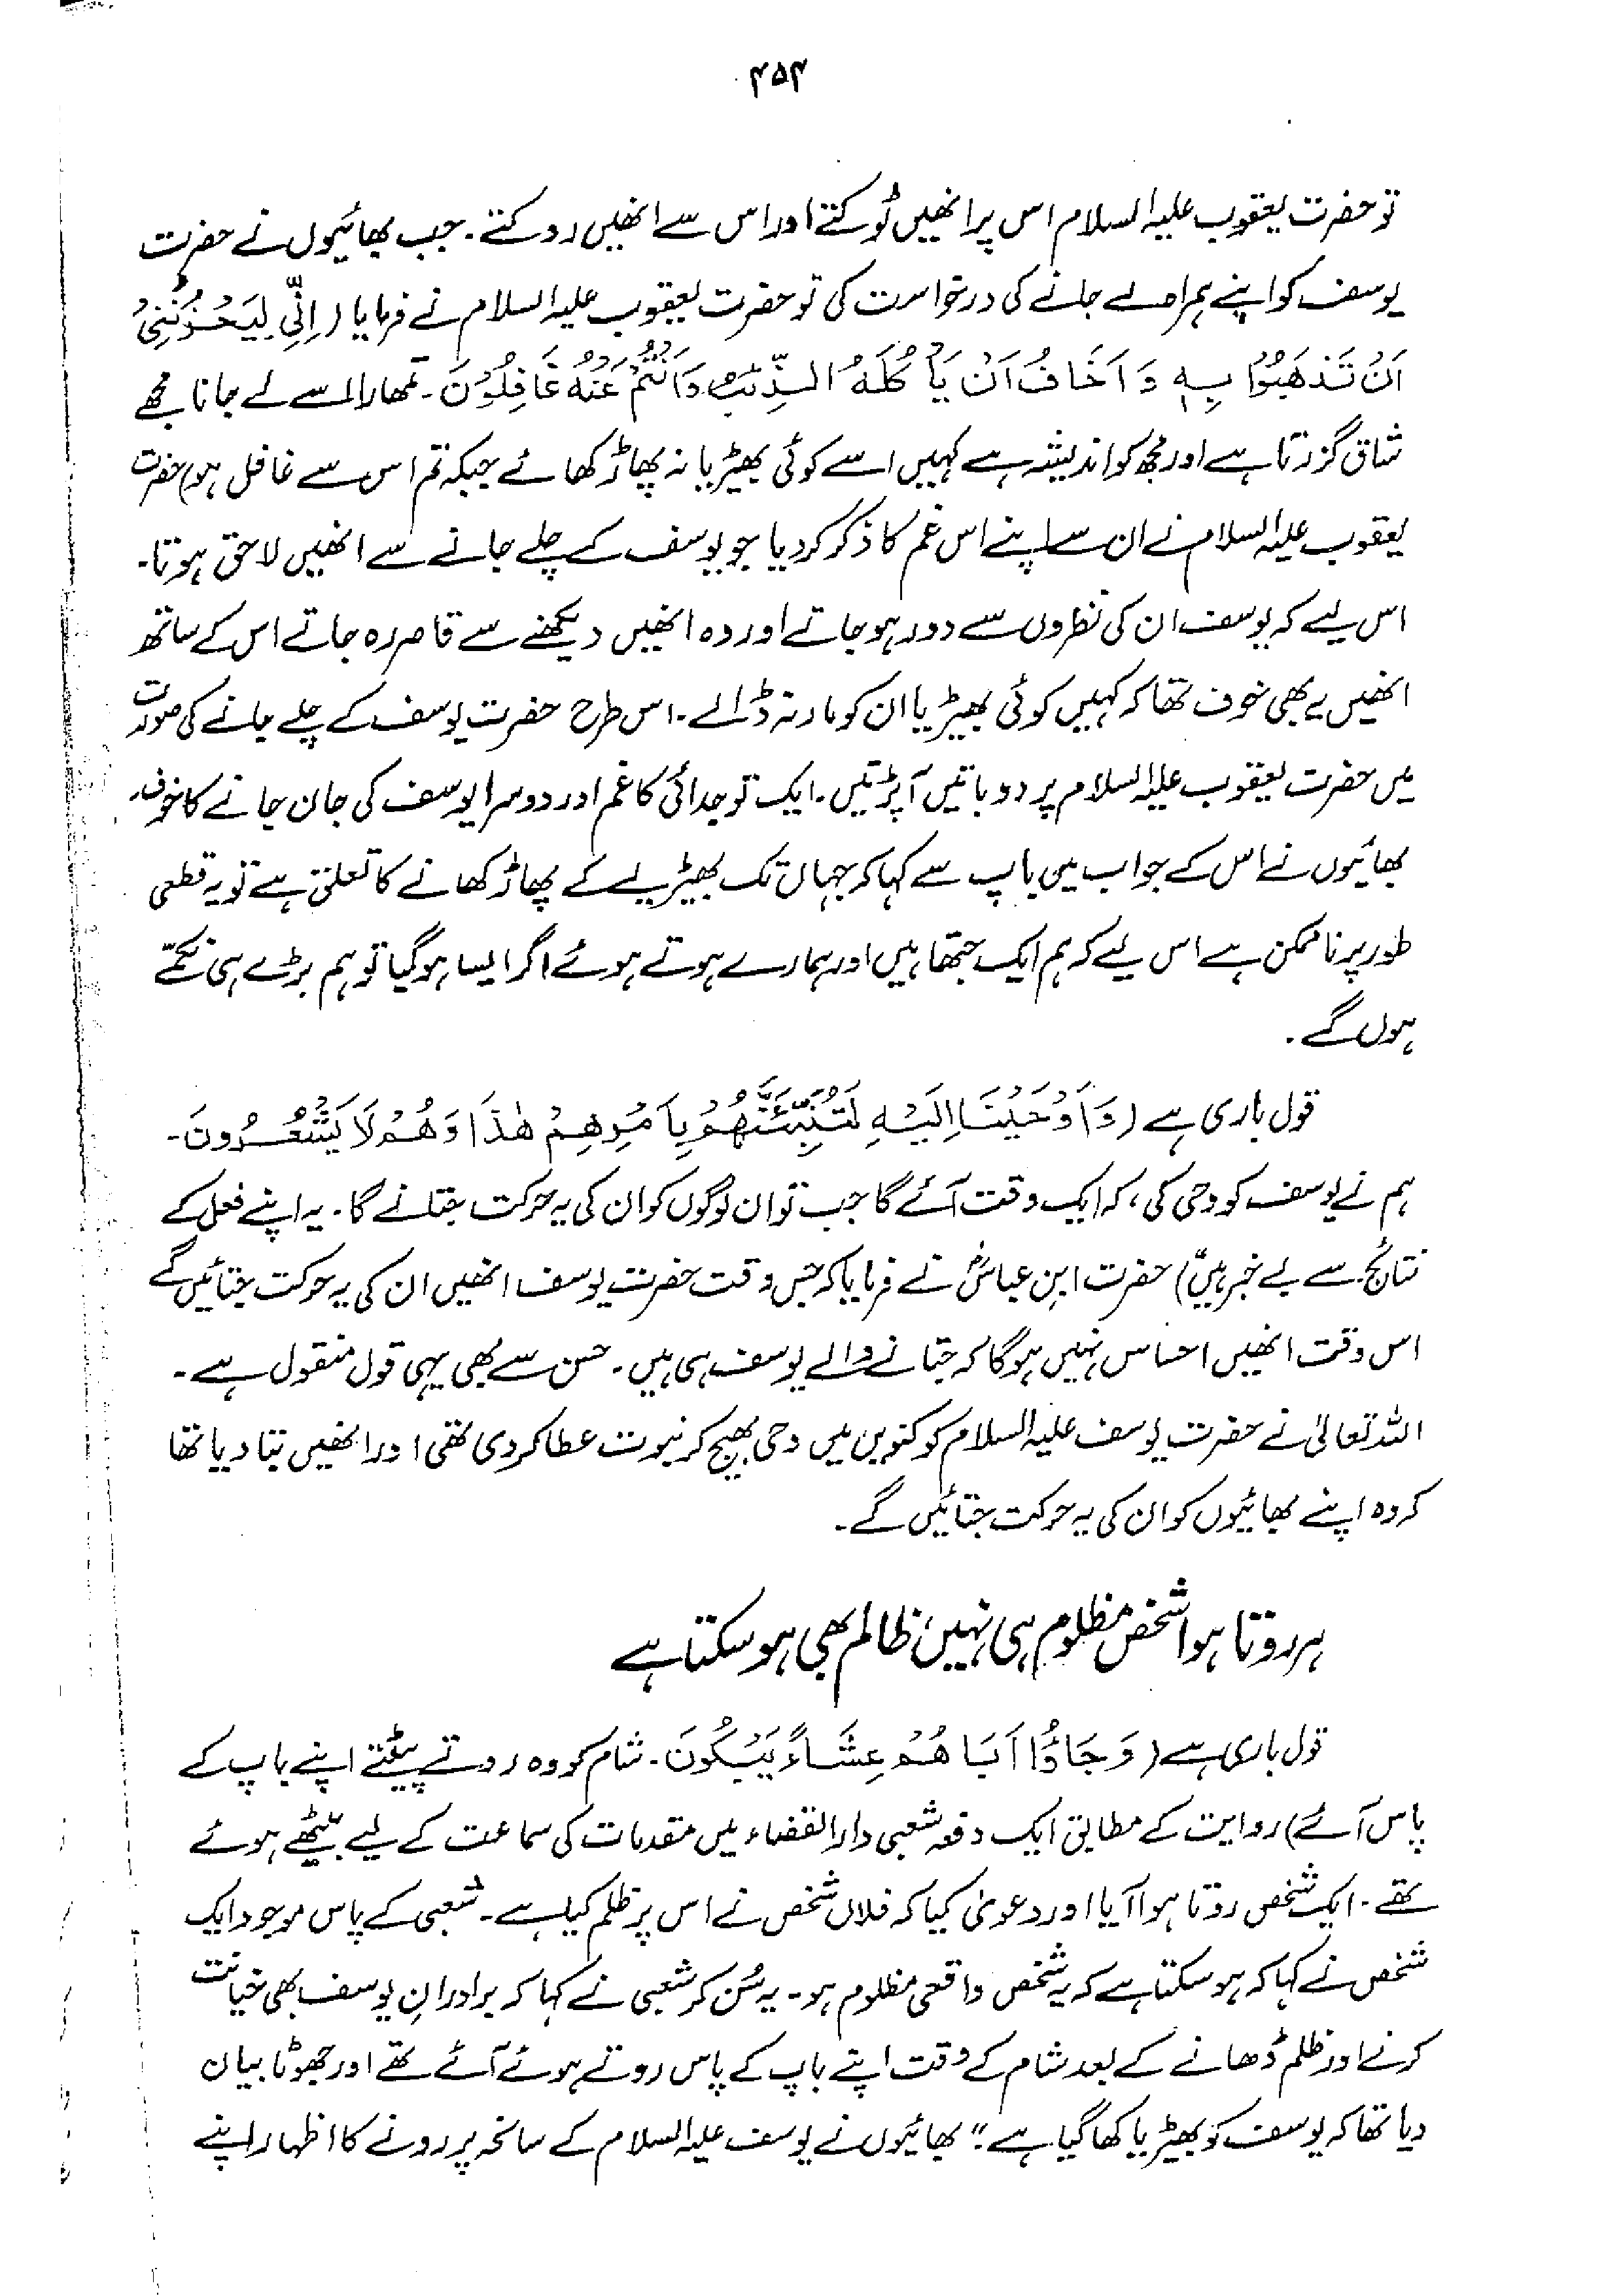 ۴۵۴
تو حضرت یعقوب علیہ السلام اس پر انھیں ٹوکتے اور اس سے انھیں روکتے۔ جب بھائیوں نے حضرت
یوسف کو اپنے ہمراہ لے جانے کی درخواست کی تو حضرت یعقوب علیہ السلام نے فرمایا (اِنِّیْ لَیَحْزُنُنِیْ
اَنْ تَذْهَبُوْا بِہٖ وَاَخَافُ اَنْ یَّاْکُلَہُ الذِّئْبُ وَاَنْتُمْ عَنْہُ غَافِلُوْنَ۔ تمھارا اسے لے جانا مجھے
شاق گزرتا ہے اور مجھ کو اندیشہ ہے کہیں اسے کوئی بھیڑیا نہ پھاڑ کھائے جبکہ تم اس سے غافل ہو) حضرت
یعقوب علیہ السلام نے ان سے اپنے اس غم کا ذکر کر دیا جو یوسف کے چلے جانے سے انھیں لاحق ہوتا۔
اس لیے کہ یوسف ان کی نظروں سے دور ہو جاتے اور وہ انھیں دیکھنے سے قاصر رہ جاتے اس کے ساتھ
انھیں یہ بھی خوف تھا کہ کہیں کوئی بھیڑیا ان کو مار نہ ڈالے۔ اس طرح حضرت یوسف کے چلے جانے کی صورت
میں حضرت یعقوب علیہ السلام پر دو باتیں آپڑتیں۔ ایک تو جدائی کا غم اور دوسرا یوسف کی جان جانے کا خوف۔
بھائیوں نے اس کے جواب میں باپ سے کہا کہ جہاں تک بھیڑیے کے پھاڑ کھانے کا تعلق ہے تو یہ قطعی
طور پر ناممکن ہے اس لیے کہ ہم ایک جتھا ہیں اور ہمارے ہوتے ہوئے اگر ایسا ہو گیا تو ہم بڑے ہی نکمّے
ہوں گے۔
قول باری ہے (وَاَوْحَیْنَا اِلَیْہِ لَتُنَبِّئَنَّهُمْ بِاَمْرِهِمْ هٰذَا وَهُمْ لَا یَشْعُرُوْنَ۔
ہم نے یوسف کو وحی کی، کہ ایک وقت آئے گا جب تو ان لوگوں کو ان کی یہ حرکت جتائے گا۔ یہ اپنے فعل کے
نتائج سے بے خبر ہیں) حضرت ابن عباسؓ نے فرمایا کہ جس وقت حضرت یوسف انھیں ان کی یہ حرکت جتائیں گے
اس وقت انھیں احساس نہیں ہوگا کہ جتانے والے یوسف ہی ہیں۔ حسن سے بھی یہی قول منقول ہے۔
اللہ تعالیٰ نے حضرت یوسف علیہ السلام کو کنویں میں وحی بھیج کر نبوت عطا کر دی تھی اور انھیں بتا دیا تھا
کہ وہ اپنے بھائیوں کو ان کی یہ حرکت جتائیں گے۔
ہر روتا ہوا شخص مظلوم ہی نہیں ظالم بھی ہو سکتا ہے
قول باری ہے (وَجَاؤُا اَبَاهُمْ عِشَاءً یَّبْکُوْنَ۔ شام کو وہ روتے پیٹتے اپنے باپ کے
پاس آئے) روایت کے مطابق ایک دفعہ شعبی دارالقضاء میں مقدمات کی سماعت کے لیے بیٹھے ہوئے
تھے۔ ایک شخص روتا ہوا آیا اور دعویٰ کیا کہ فلاں شخص نے اس پر ظلم کیا ہے۔ شعبی کے پاس موجود ایک
شخص نے کہا کہ ہو سکتا ہے کہ یہ شخص واقعی مظلوم ہو۔ یہ سُن کر شعبی نے کہا کہ برادرانِ یوسف بھی خیانت
کرنے اور ظلم ڈھانے کے بعد شام کے وقت اپنے باپ کے پاس روتے ہوئے آئے تھے اور جھوٹا بیان
دیا تھا کہ یوسف کو بھیڑیا کھا گیا ہے" بھائیوں نے یوسف علیہ السلام کے سانحہ پر رونے کا اظہار اپنے